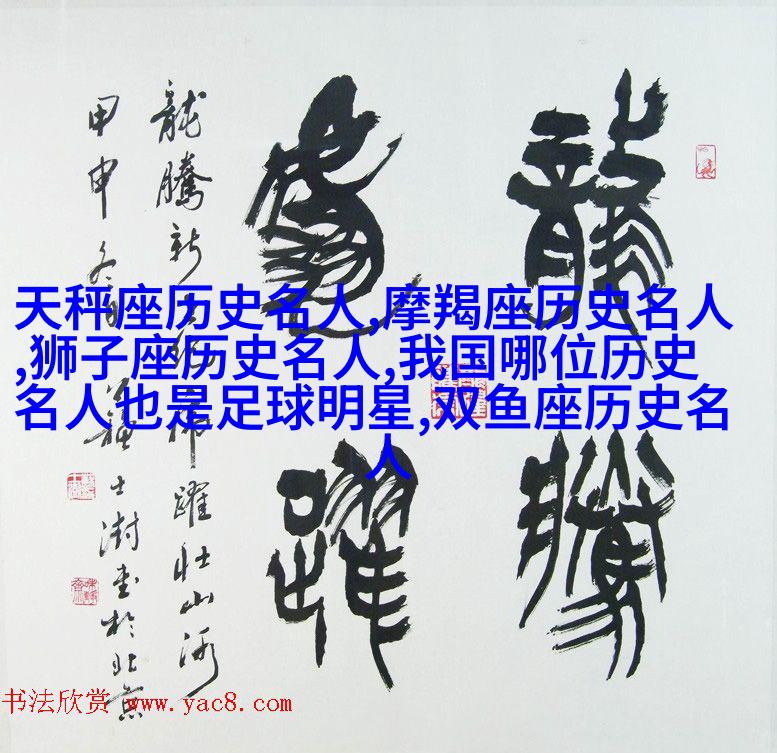 龍騰
虎躍
龍騰新世紀虎躍壯山河
甲申冬日蘇士澍書於北京
天秤座历史名人,摩羯座历史名人
,狮子座历史名人,我国哪位历史
名人也是足球明星,双鱼座历史名
人
书法欣赏 www.yac8.com